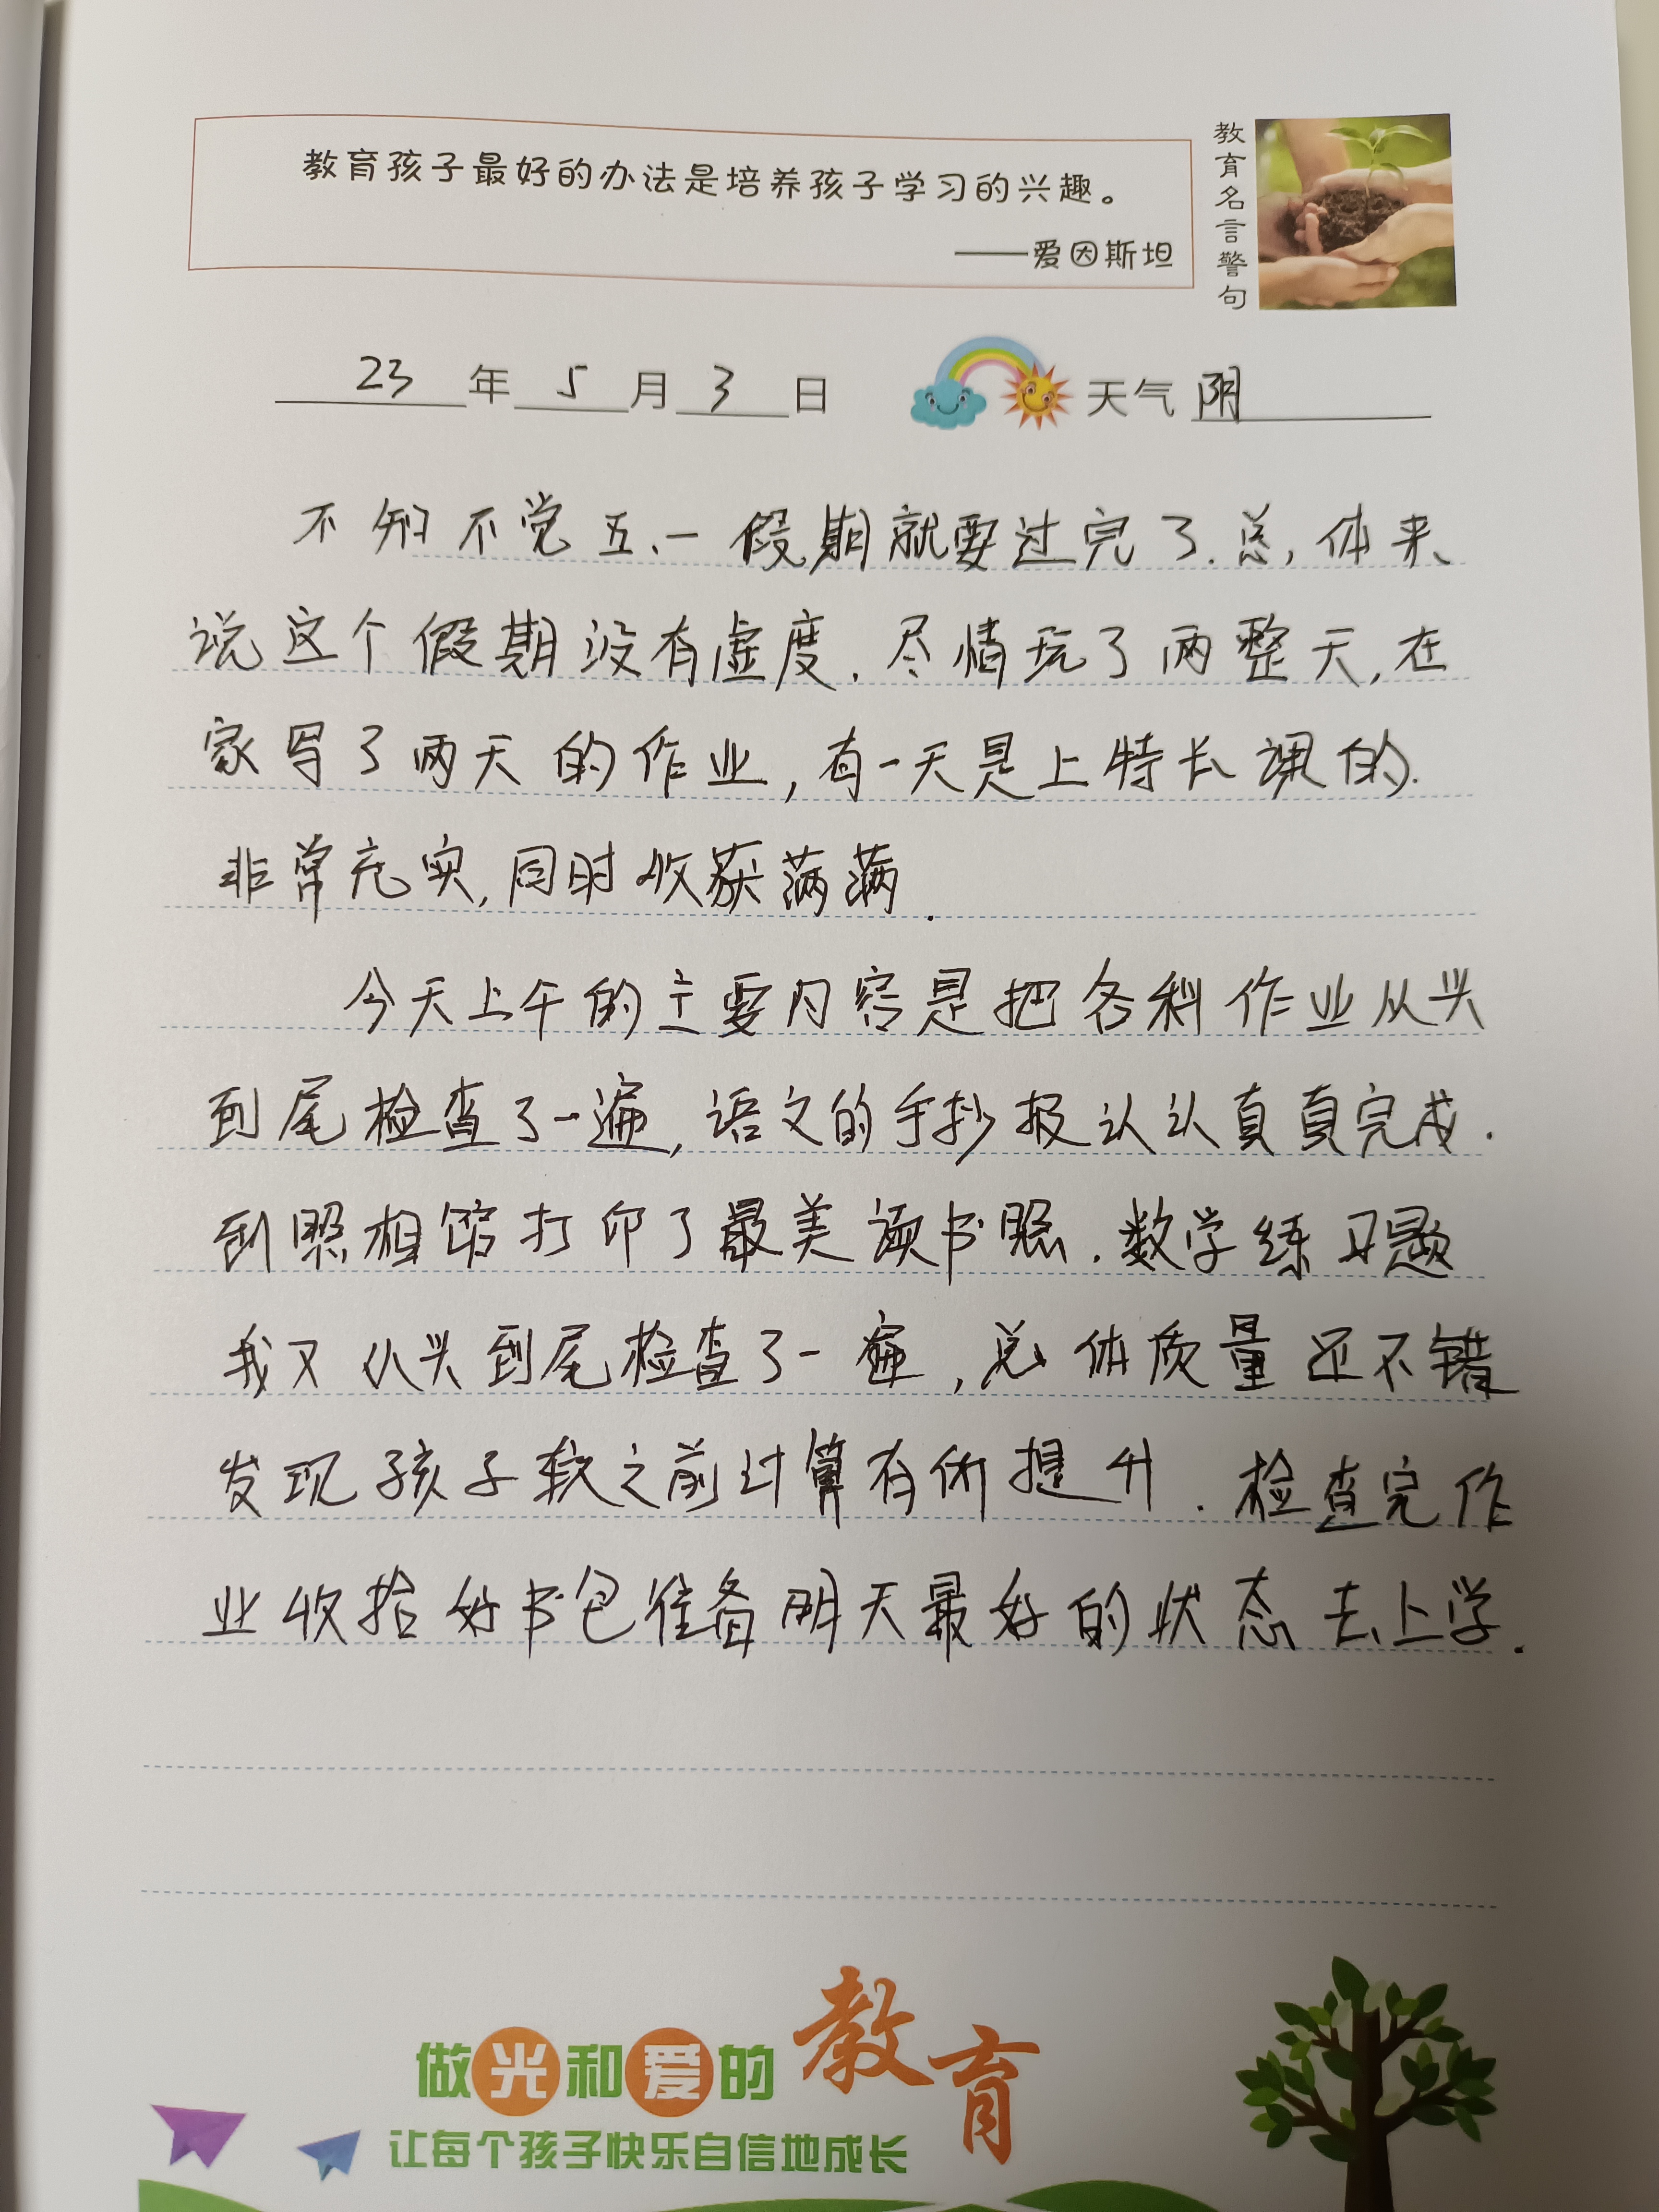 教育孩子最好的办法是培养孩子学习的兴趣。
——爱因斯坦
教育名言警句
23年5月3日 天气 阴
不知不觉五、一假期就要过完了.总,体来
说这个假期没有虚度.尽情玩了两整天,在
家写了两天的作业,有一天是上特长课的.
非常充实,同时收获满满.
今天上午的主要内容是把各科作业从头
到尾检查了一遍,语文的手抄报认认真真完成.
到照相馆打印了最美读书照.数学练习题
我又从头到尾检查了一遍,总体质量还不错
发现孩子较之前计算有所提升.检查完作
业收拾好书包准备明天最好的状态去上学.
做光和爱的教育
让每个孩子快乐自信地成长